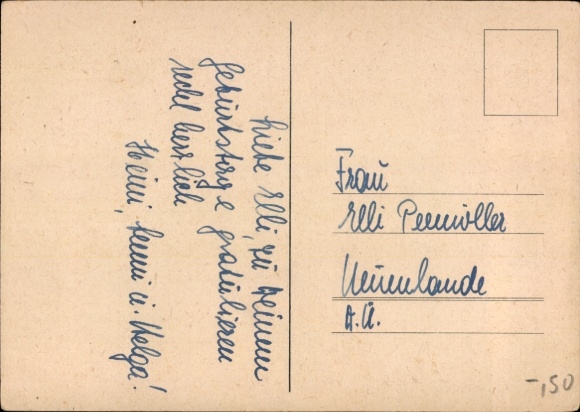 Liebe Elli, zu Deinem
Geburtstage gratulieren
recht herzlich
Heini, Henni u. Helga!
Frau
Elli
Neuenlande
A.U.
-,50